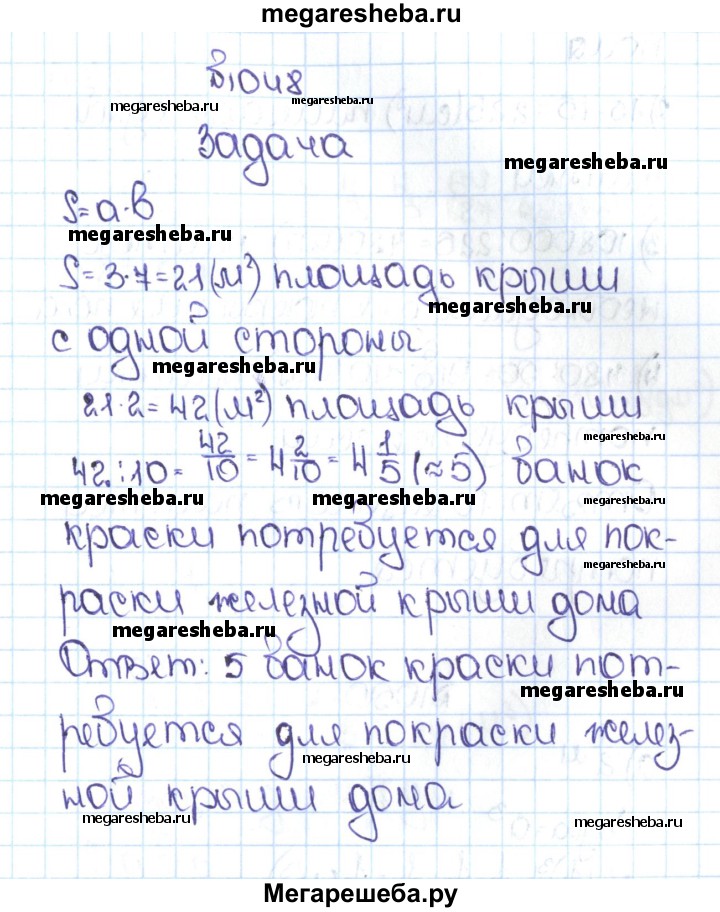 megaresheba.ru
В,048
megaresheba.ru megaresheba.ru
Задача
megaresheba.ru
S=a·b
megaresheba.ru
S=3·7=21(м²) площадь крыши
megaresheba.ru
с одной стороны
megaresheba.ru
21·2=42(м²) площадь крыши
42:10= 42/10 = 4 2/10 = 4 1/5 (≈5) банок
megaresheba.ru megaresheba.ru megaresheba.ru
краски потребуется для пок-
megaresheba.ru
раски железной крыши дома
megaresheba.ru
Ответ: 5 банок краски пот-
megaresheba.ru
ребуется для покраски желез-
megaresheba.ru
ной крыши дома
megaresheba.ru megaresheba.ru
Мегарешеба.ру